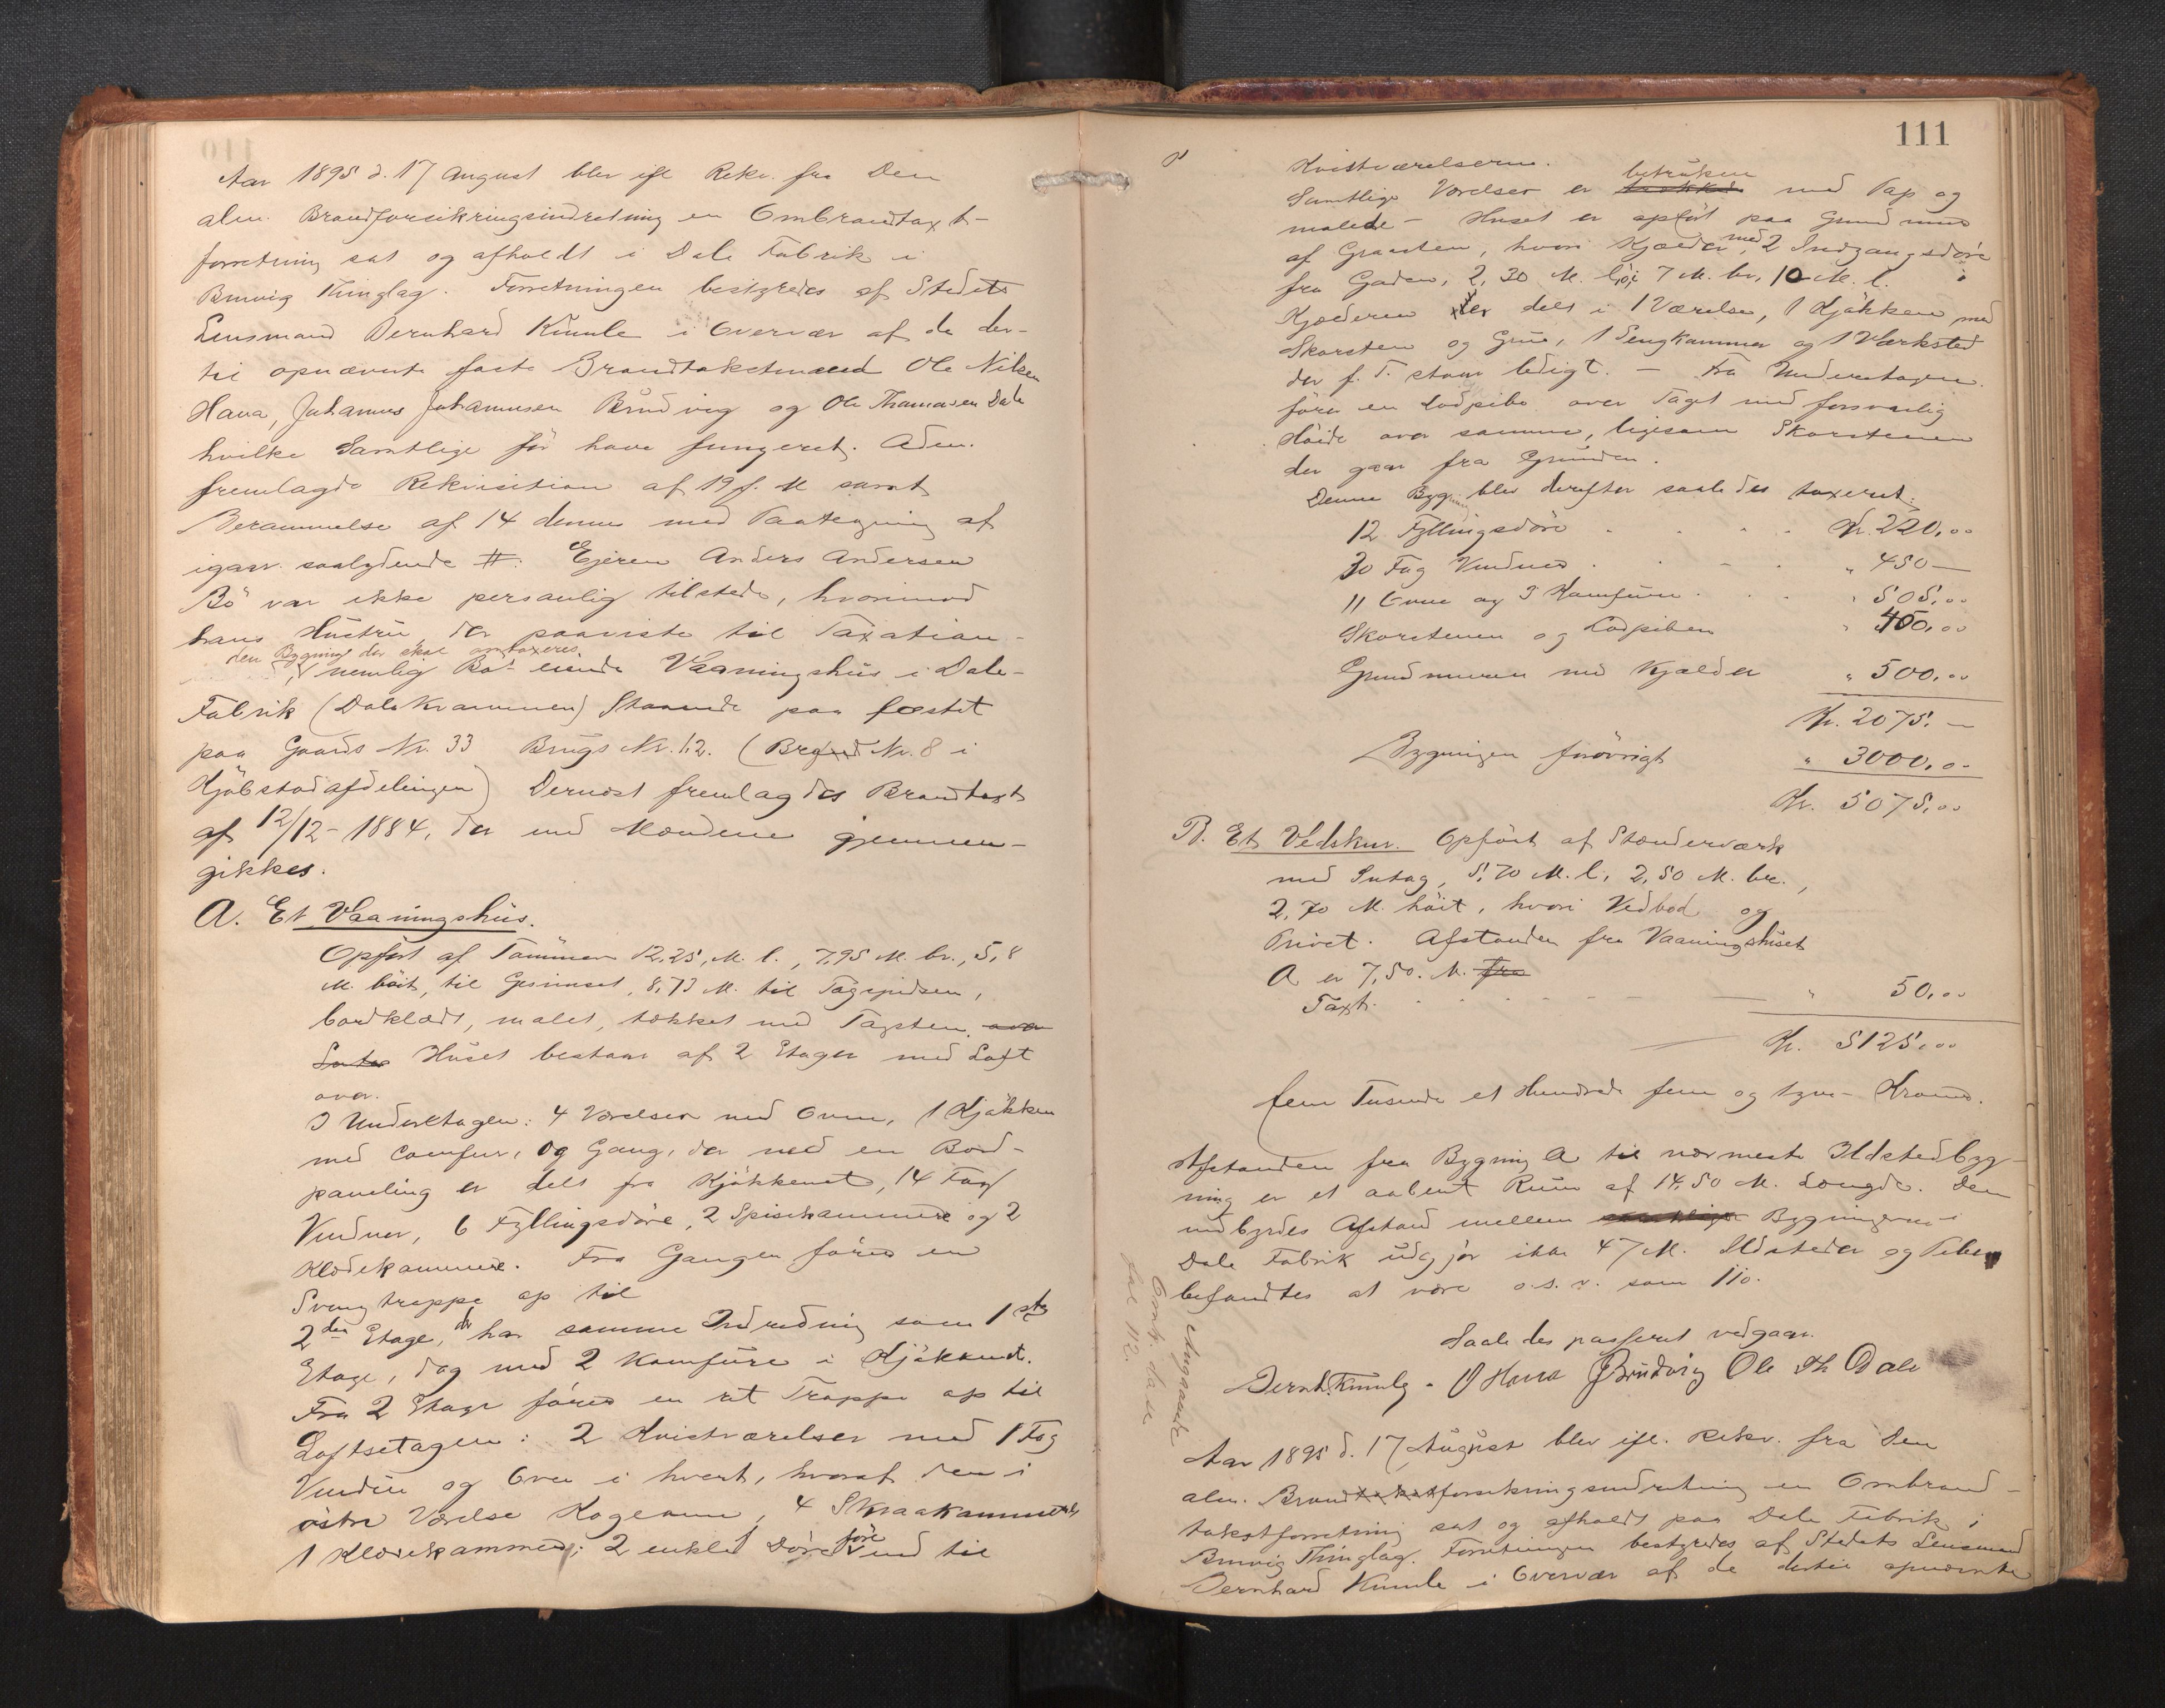 Aar 1895 d. 17 August blev ifl Rekv. fra Den
alm. Brandforsikringsindretning en Ombrandtaxt-
forretning sat og afholdt i Dale Fabrik i
Bruvig Thinglag. Forretningen bestyredes af Stedets
Lensmand Bernhard Kumle i Overvær af de der-
til opnævnte faste Brandtakstmænd Ole Nilsen
Hana, Johannes Johannesen Brudvig og Ole Thomasen Dale
hvilke Samtlige før have fungeret. Adm.
fremlagde Rekvisition af 19 f. M samt
Berammelse af 14 denne med Paategning af
igaar saalydende #: Ejeren Anders Andersen
Bö var ikke personlig tilstede, hvorimod
hans Hustru, der paaviste til Taxation
den Bygning der skal omtaxeres
nemlig Bö's eiende Vaaningshus i Dale-
Fabrik (Dale Kvammen) Staaende paa fæstet
paa Gaards Nr. 33 Brugs Nr. 12. (Brand Nr. 8 i
Kjöbstadafdelingen) Dernæst fremlagdes Brandtaxt
af 12/12-1884, der med Mændene gjennem-
gikkes.
A. Et Vaaningshus.
Opført af Tømmer 12,25, M. l., 7,95 M. br., 5,8
M. høit, til Gesimset, 8,73 M. til Tagspidsen,
bordklædt, malet, tækket med Tagsten. over
Huset bestaar af 2 Etager med Loft
over.
I Underetagen: 4 Værelser med Ovne, 1 Kjøkken
med Comfur, og Gang, der med en Bord-
paneling er delt fra Kjøkkenet, 14 Fag
Vinduer, 6 Fyllingsdøre, 2 Spisekammere og 2
Klædekammere. Fra Gangen føres en
Svingtrappe op til
2den Etage, der har samme Indredning som 1ste
Etage, dog med 2 Komfure i Kjøkkenet.
Fra 2 Etage føres en ret Trappe op til
Loftsetagen: 2 Kvistværelser med 1 Fag
Vindu og Ovn i hvert, hvoraf den i
østre Værelse Kogeovn, 4 Skraakammere
1 Klædekammer; 2 enkle Døre före ind til
111
Kvistværelserne.
betrukken
Samtlige Værelser er trukket med Pap og
malede - Huset er opført paa Grundmur
af Graasten, hvori Kjælder med 2 Indgangsdøre
fra Gaden, 2,30 M. høi 7 M. br, 10 M. l.
Kjælderen er delt i 1 Værelse, 1 Kjøkken med
Skorsten og Grue, 1 Sengkammer og 1 Værksted
der f. T. staar ledigt. - Fra Underetagen
fører en Lodpibe over Taget med forsvarlig
Høide over samme, ligesom Skorstenen
der gaar fra Grunden.
Denne Bygning blev derefter saaledes taxeret:
12 Fyllingsdøre Kr. 220,00
30 Fag Vinduer " 450 -
11 Ovne og 3 Komfure " 505,00
Skorstenen og Lodpiben " 400,00
Grundmuren med Kjælder " 500,00
Kr. 2075. -
Bygningen forøvrigt " 3000,00
Kr. 5075,00
B. Et Vedskur. Opført af Stænderværk
med Intag, 5,70 M. l, 2,50 M. br.,
2,70 M. høit, hvori Vedbod og
Privet. Afstanden fra Vaaningshuset
A er 7,50. M. fra
Taxt. " 50,00
Kr. 5125,00
fem Tusende et Hundrede fem og tyve Kroner.
Afstanden fra Bygning A til nærmeste Ildstedbyg-
ning er et aabent Rum af 14,50 M. Længde. Den
indbyrdes Afstand mellem Bygningerne i
Dale Fabrik udgjør ikke 47 M. Ildsteder og Piber
befandtes at være o.s.v. som 110.
Saaledes passeret vedgaar.
Bernh. Kumle. O Hana J Brudvig Ole Th Dale
Angaaende
Omtx. da se
fol 112.
Aar 1895 d. 17 August blev ifl. Rekv. fra Den
alm. Brandforsikringsindretning en Ombrand-
takstforretning sat og afholdt paa Dale Fabrik i
Bruvig Thinglag. Forretningen bestyredes af Stedets Lensmand
Bernhard Kumle i Overvær af de dertil opnævnte